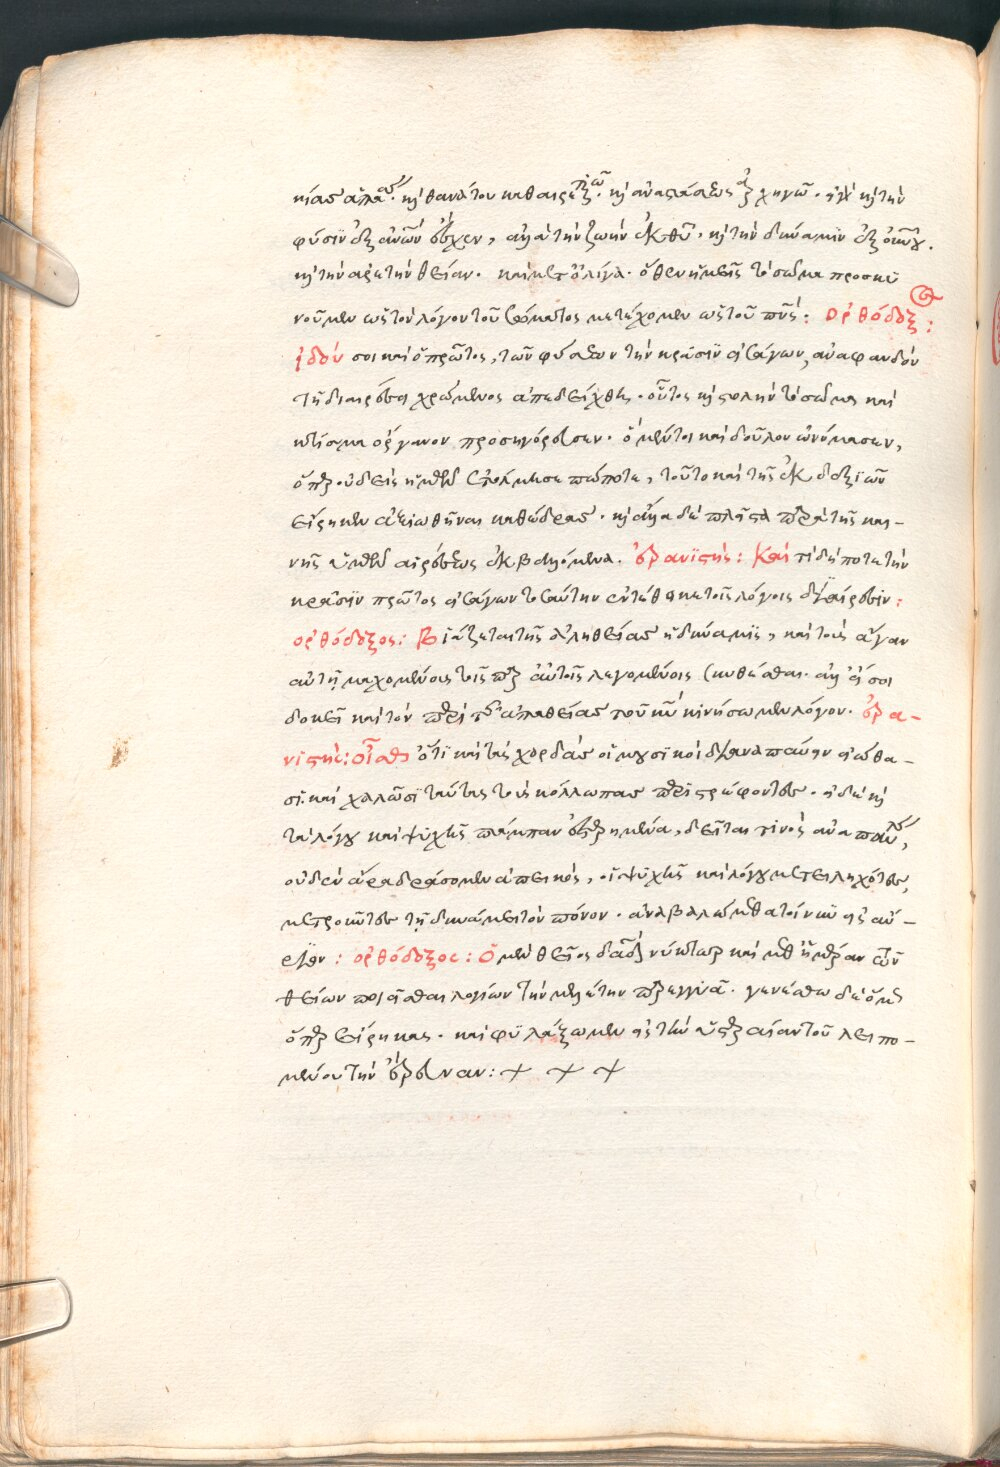 κίας ἁπάσ· κ(αὶ) θανάτου καθαιρέτ · κ(αὶ) ἀναστάσεως ἀρχηγῶ · εἰ κ(αὶ) τὴν
φύσιν ἐξ ἀν(θρώπ)ων ἔσχεν, ἀλλὰ τὴν ζωὴν ἐκ θ(εο)ῦ, κ(αὶ) τὴν δύναμιν ἐξ οὐ(ρα)νοῦ.
κ(αὶ) τὴν ἀρετὴν θείαν. καὶ μετ' ὀλίγα· ὅθεν ἡμεῖς τὸ σῶμα προσκυ
νοῦμεν ὡς τὸν λόγον τοῦ σώματος μετέχομεν ὡς τοῦ πν(εύματο)ς: ὀρθόδοξ:
ἰδού σοι καὶ ὁ πρῶτος, τῶν φύσεων τὴν κρᾶσιν εἰσάγων, ἀναφανδόν
τῇ διαιρέσει χρώμενος ἀπεδείχθη. οὗτος κ(αὶ) στολὴν τὸ σῶμα καὶ
κτίσμα ὄργανον προσηγόρευσεν. ὁ μέντοι καὶ δοῦλον ὠνόμασεν,
ὅπερ οὐδεὶς ἡμῶν ἐτόλμησε πώποτε, τοῦτο καὶ τῆς ἐκ δεξιῶν
εἴρηκεν ἀξιωθῆναι καθέδρας. κ(αὶ) ἄλλα δὲ πλεῖστα παρὰ τῆς και-
νῆς ὑμῶν αἱρέσεως ἐκβαλλόμενα. ἐρανιστής: Καὶ τί δήποτε τὴν
κρᾶσιν πρῶτος εἰσάγων τοσαύτην ἐντέθεικε τοῖς λόγοις διαίρεσιν:
ὀρθόδοξος: Βιάζεται τῆς ἀληθείας ἡ δύναμις, καὶ τοὺς ἄγαν
αὐτῇ μαχομένους τοῖς παρ' αὐτοῖς λεγομένοις συνθέσθαι. ἀλλ' εἴ σοι
δοκεῖ καὶ τὸν περὶ τῆς ἀπαθείας τοῦ κ(υρίο)υ κινήσωμεν λόγον. ἐρα-
νιστής: οἶσθα ὅτι καὶ τὰς χορδὰς οἱ μουσικοὶ διαναπαύειν εἰώθα-
σι. καὶ χαλῶσι ταύτας τοὺς κόλλωπας περιστρέφοντες. εἰ δὲ κ(αὶ)
τὰ λόγου καὶ ψυχῆς πάμπαν ἐστερημένα, δεῖται τινὸς ἀναπαύλ,
οὐδὲν ἄρα δράσομεν ἀπεικός, οἱ ψυχῆς καὶ λόγου μετειληχότες,
μετροῦντες τῇ δυνάμει τὸν πόνον. ἀναβαλώμεθα τοίνυν εἰς αὔ-
ριον: ὀρθόδοξος: Ὁ μὲν θεῖος δα(υὶ)δ νύκτωρ καὶ μεθ' ἡμέραν τῶν
θείων ποιεῖσθαι λογίων τὴν μελέτην παρεγγυᾷ. γενέσθω δὲ ὅμως
ὅπερ εἴρηκας. καὶ φυλάξωμεν εἰς τὴν ὑστεραίαν τοῦ λειπο-
μένου τὴν ἔρευναν: + + +